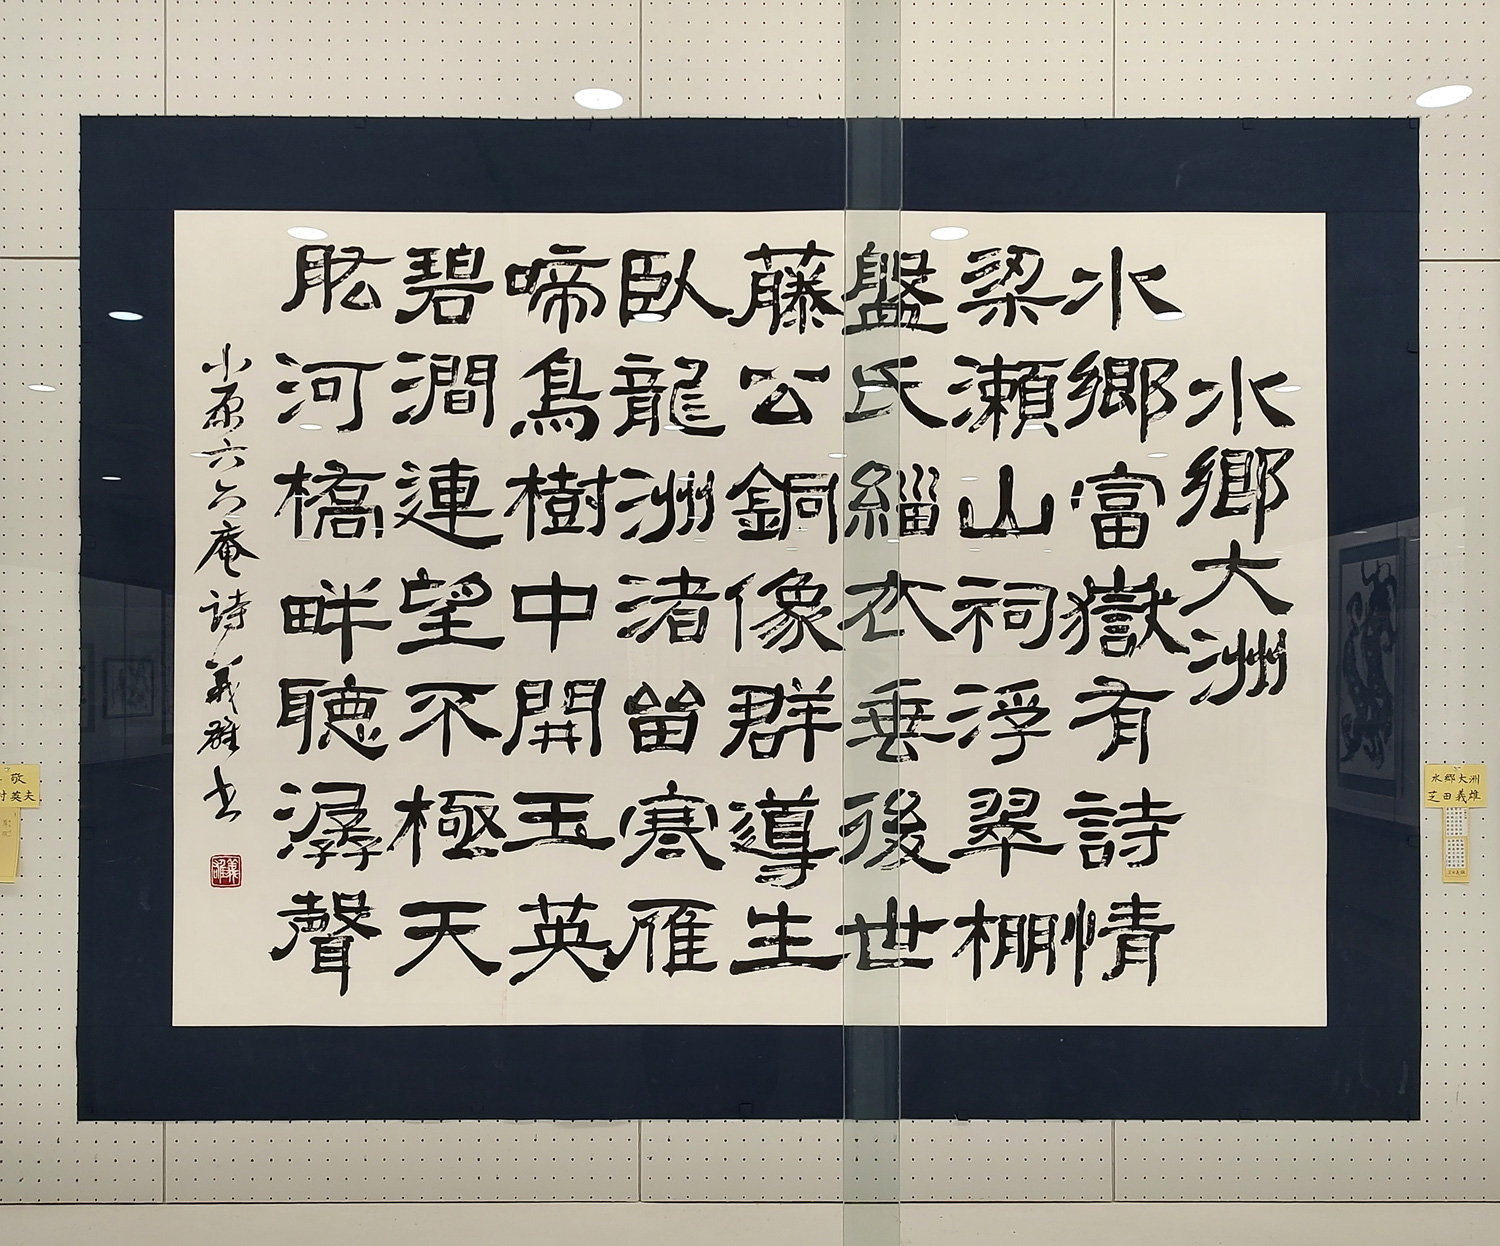 水郷大洲
水郷富嶽有詩情
梁瀬山祠浮翠棚
盤氏緇衣垂後世
藤公銅像群導生
臥龍洲渚留寒雁
啼鳥樹中開玉英
碧澗連望不極天
肱河橋畔聽潺聲
小原六六庵詩 義雄書
義雄
水郷大洲
芝田義雄
敬
村英夫